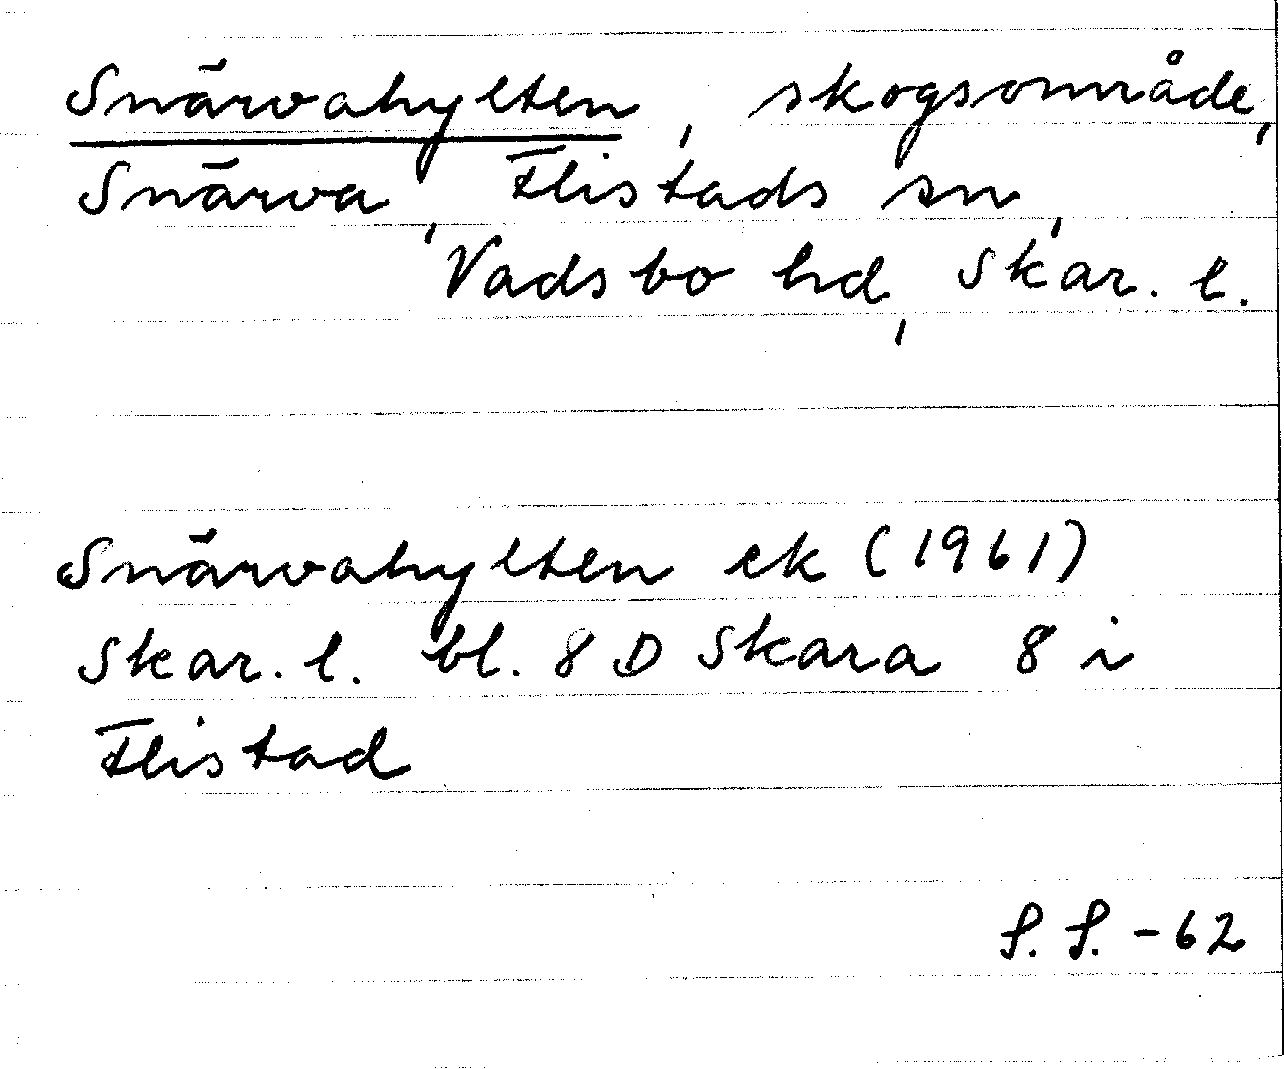 Snärvahylten, skogsområde,
Snärva, Flistads sn,
Vadsbo hd, Skar. l.
Snärvahylten ek (1961)
Skar. l. bl. 8 D Skara 8 i
Flistad
S. S. -62